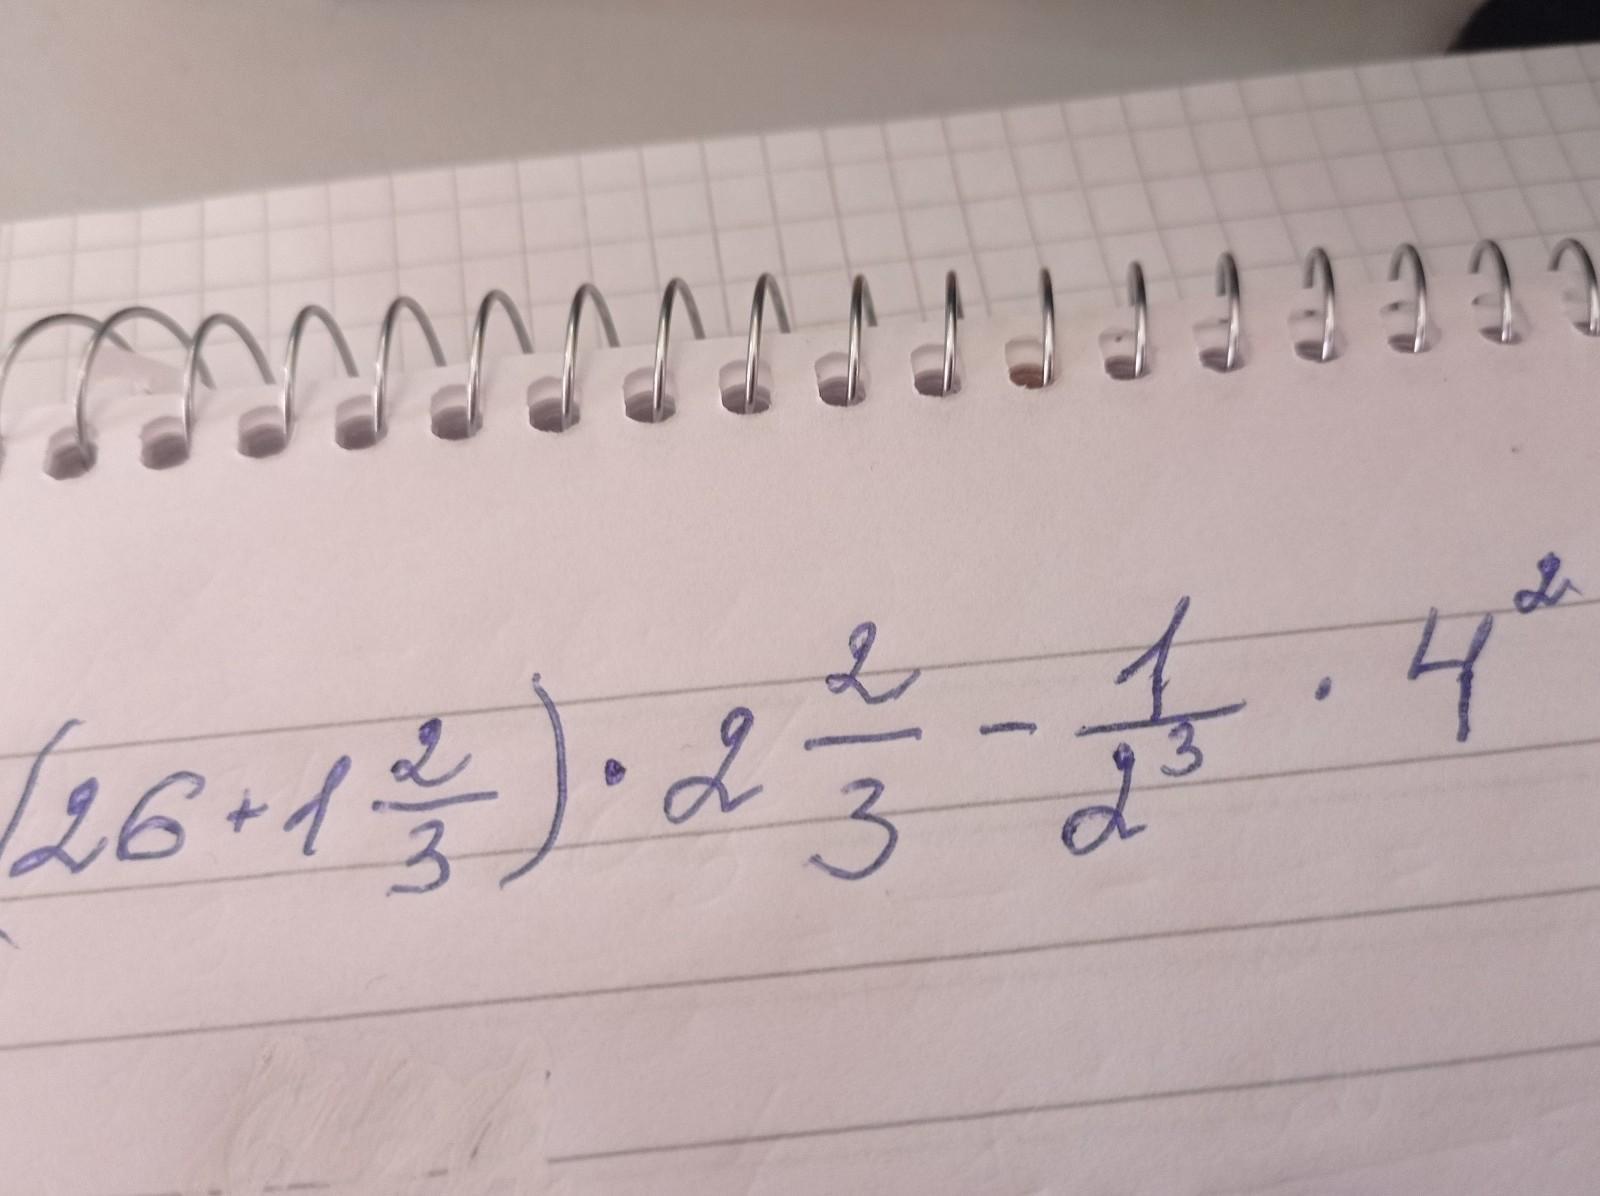 (26+1 2/3) · 2 2/3 - 1/2³ · 4²